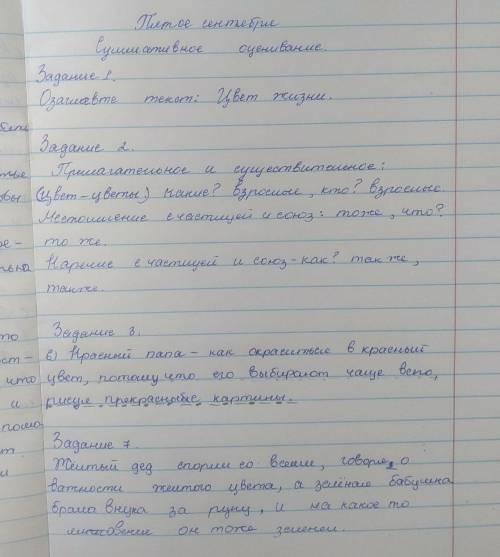 Пятое сентября
Суммативное оценивание.
Задание 1.
Озаглавте текст: Цвет жизни.
Задание 2.
Прилагательное и существительное:
(цвет-цветы) какие? Взрослые, кто? взрослые
Местоимение с частицей и союз: тоже, что?
то же.
Наречие с частицей и союз-как? так же,
также.
Задание 3.
в) Красный папа - как окраситься в красный
цвет, потому что его выбирают чаще всего,
рисуя прекрасные картины.
Задание 7.
Желтый дед спорил со всеми, говоря о
важности желтого цвета, а зелёная бабушка
брала внука за руку, и на какое то
мгновение он тоже зеленел.
ре-
то
ст-
что
и